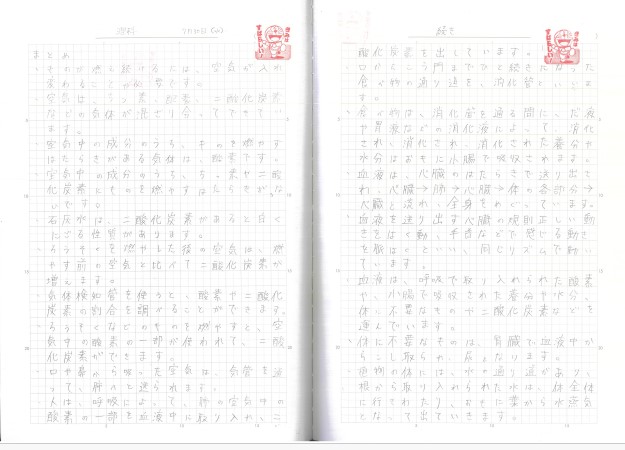 理科
まとめ
・ものが燃え続けるには、空気が入れ
変わることが必要です。
・空気は、ちっ素、酸素、二酸化炭素
などの気体が混ざり合ってできてい
ます。
・空気中の成分のうち、ものを燃やす
はたらきがある気体は、酸素です。
・空気中の成分のうち、ちっ素や二酸
化炭素にものを燃やすはたらきがな
いです。
・石灰水は、二酸化炭素があると白く
にごる性質があります。
・ろうそくを燃やした後の空気は、燃
やす前の空気と比べて二酸化炭素が
増えます。
・気体検知管を使うと、酸素や二酸化
炭素の割合を調べることができます。
・ろうそくなどのものを燃やすと、空
気中の酸素の一部が使われて、二酸
化炭素ができます。
・口や鼻から吸った空気は、気管を通
って、肺へと送られます。
・人は、呼吸によって、肺の空気中の
酸素の一部を血液中に取り入れ、二
続き
酸化炭素を出しています。
・口からこう門までひと続きになった
食べ物の通り道を、消化管といいま
す。
・食べ物は、消化管を通る間に、だ液
や胃液などの消化液によって、消化
され、消化され、消化された養分や
水分はおもに小腸で吸収されます。
・血液は、心臓のはたらきで送り出さ
れ、心臓→肺→心臓→体の各部分→
心臓と流れ、全身をめぐっています。
・血液を送り出す心臓の規則正しい動
きをはく動、手首などで感じる動き
を脈はくといい、同じリズムで動い
ています。
・血液は、呼吸で取り入れられた酸素
や、小腸で吸収された養分や水分、
体に不要なものや二酸化炭素などを
運んでいます。
・体に不要なものは、腎臓で血液中か
らこし取られ、尿となります。
・植物の体には、水の通り道があり、
根から取り入れられた水は、体全体
に行きわたり、おもに葉から水蒸気
となって出ていきます。